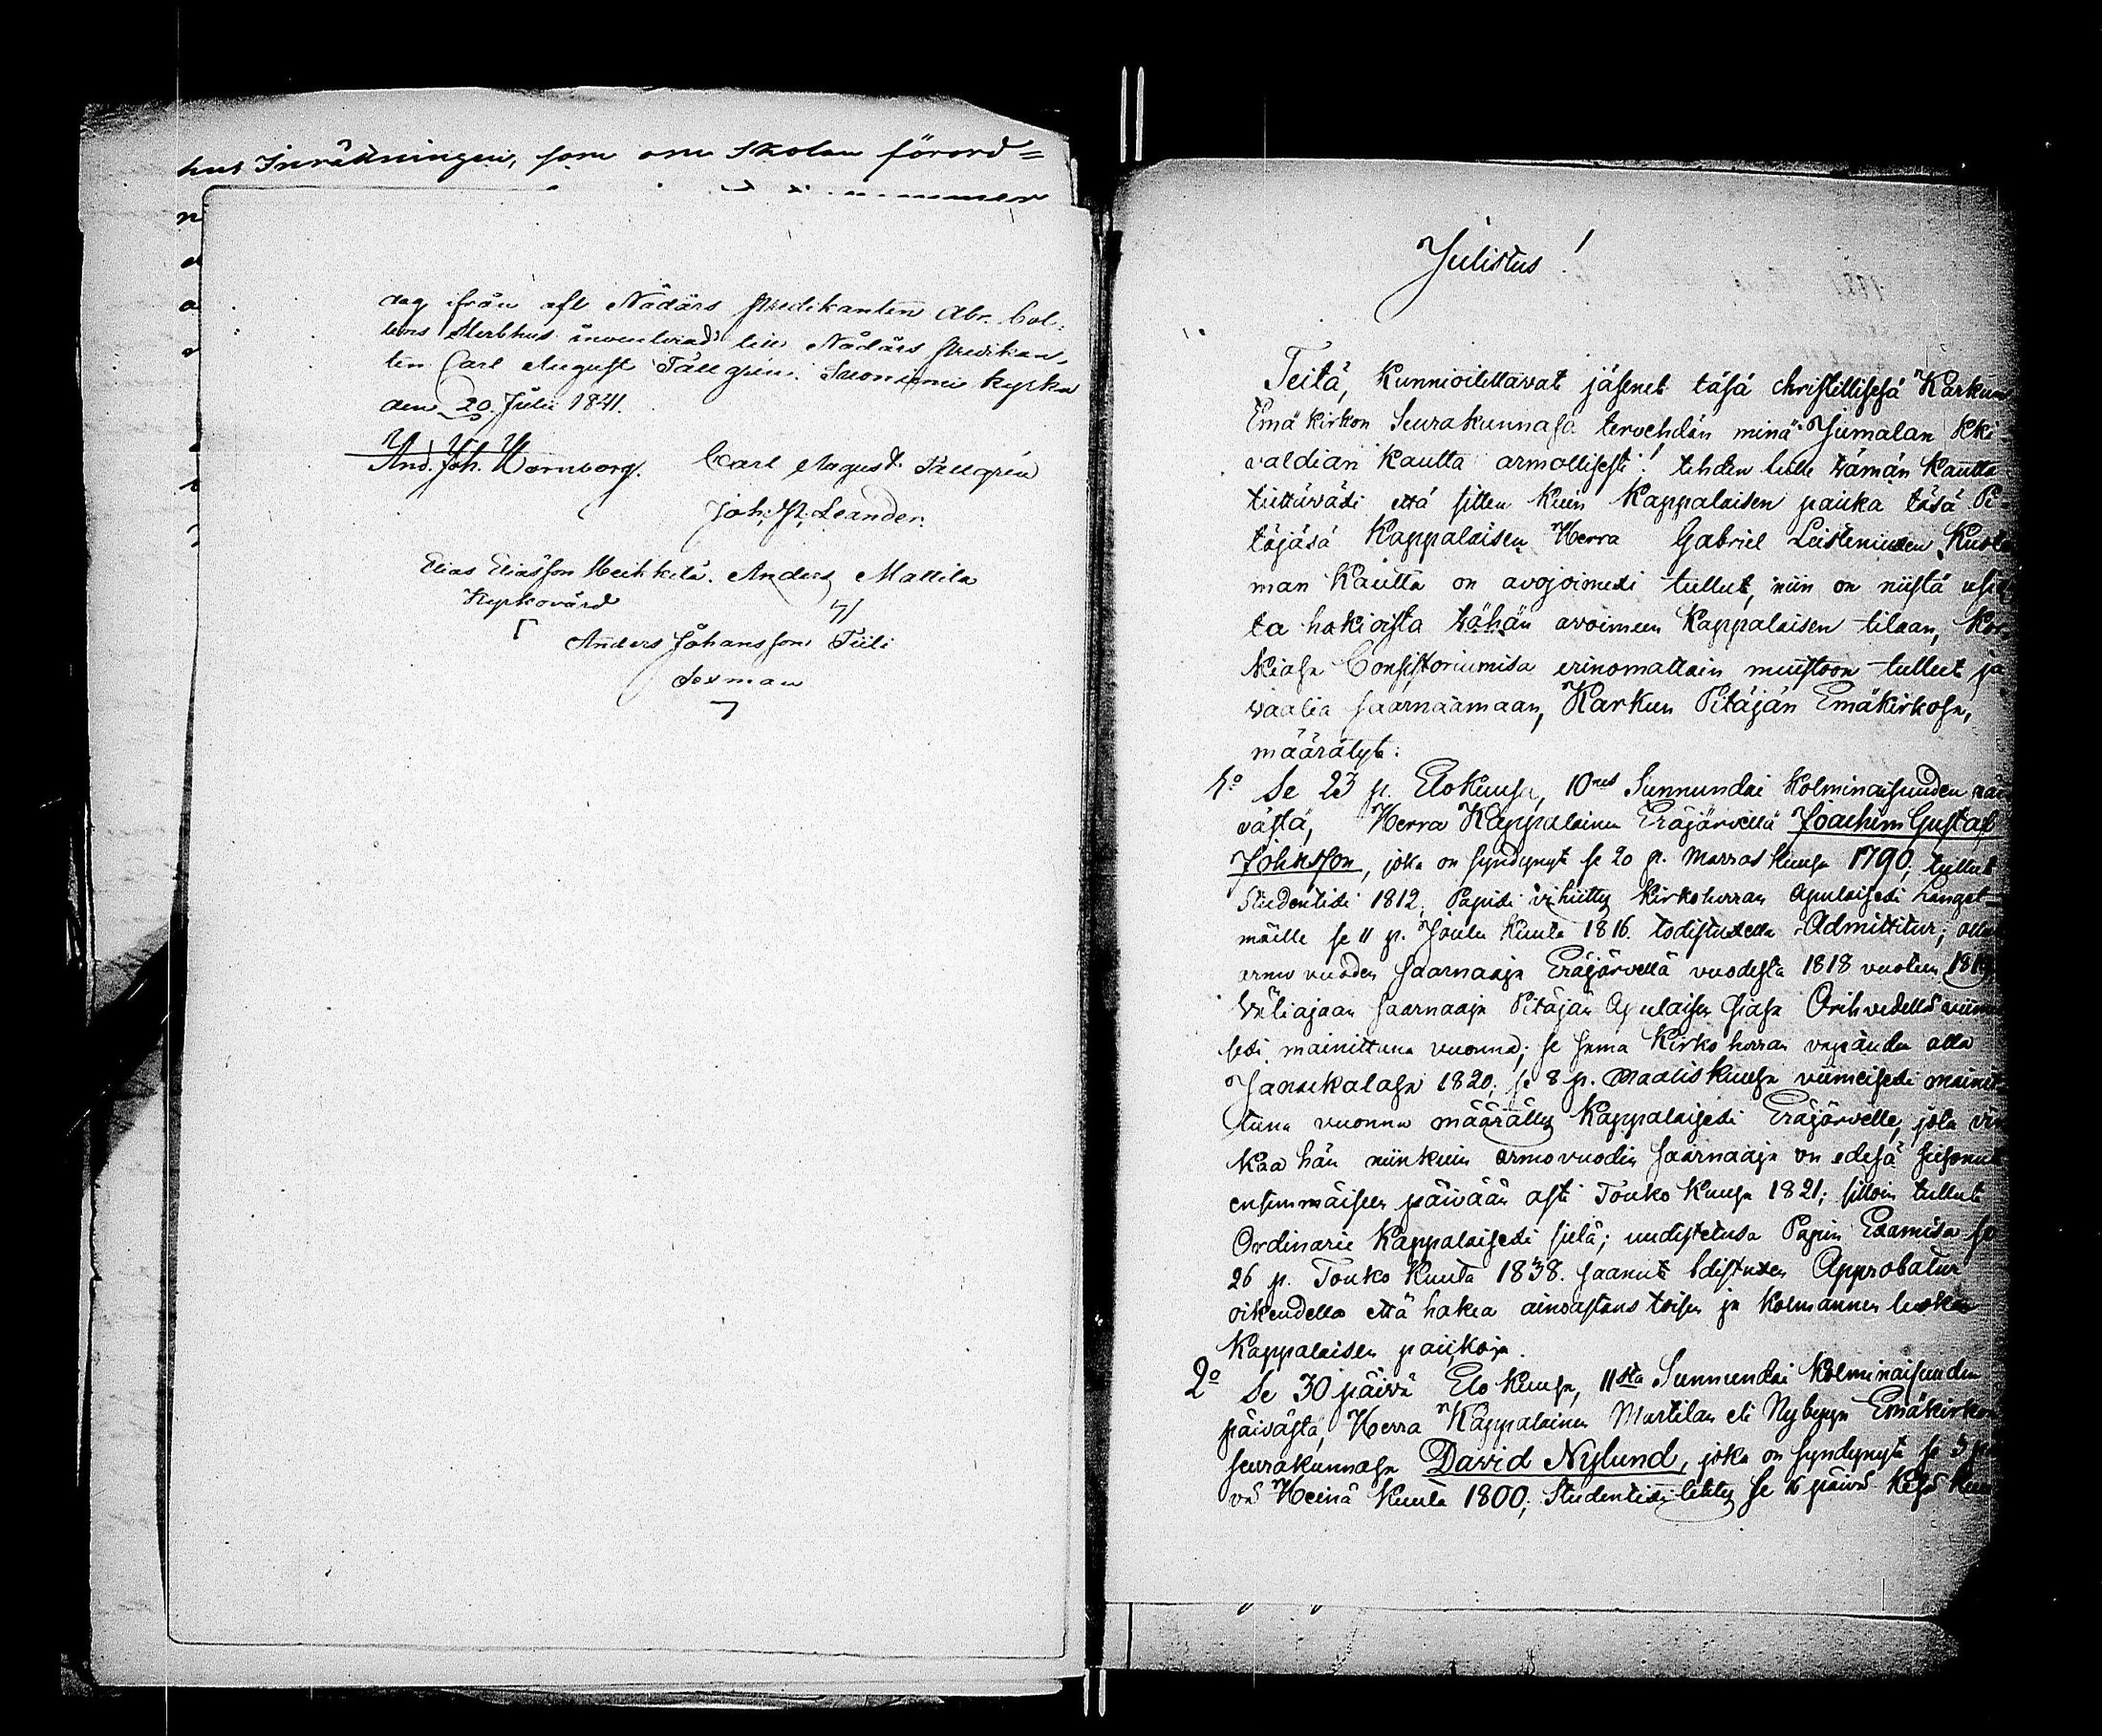 hus Inrättningen, som om Skolan förord=
dag ifrån afl Nådårs Predikanten Abr. Col-
lens Sterbhus inventerad till Nådårs Predikan-
ten Carl August Tällgrén. Suoniemi Kyrka
den 20. Julii 1841.
And. Joh. Wörnborg. Carl August Tällgrén
Joh: St: Leander.
Elias Eliasson Heikkilä. Anders Mattila
Kyrkovärd
Anders Johansson Tiili
Sexman
Julistus!
Teitä, Kunnioitettavat jäsenet täsä christillisesä Karkun
Emä Kirkon Seurakunnasa tervehdän minä Jumalan Kki-
valdian Kautta armollisesti! tehden teille tämän Kautta
tiettäväksi että sitten Kuin Kappalaisen paikka täsä Pi-
täjäsä Kappalaisen Herra Gabriel Leisteniuxen Kuole-
man Kautta on avojoimexi tullut, niin on niistä usit
ta hakioista tähän avoimeen Kappalaisen tilaan, Kor-
kiasa Consistoriumisa erinomattain muistoon tullut ja
waalia saarnaamaan, Karkun Pitäjän Emäkirkosa,
määrätyt:
1o Se 23 p. Elokuusa, 10nes Sunnundai Kolminaisuuden päi
västä, Herra Kappalainen Eräjärvellä Joachim Gustaf
Johnsson, joka on syndynyt se 20 p. Marras Kuusa 1790, tullut
Studentixi 1812, Papixi vihitty Kirkoherran Apulaisexi Längel-
mäelle se 11 p. Joulu Kuuta 1816. todistuxella Admittitur; ollut
armo vuoden saarnaaja Eräjärvellä vuodesta 1818 vuoteen 1819
Väliajaan saarnaaja Pitäjän Apulaisen siasa Orihvedellä viimei
sexi mainittuna vuonna; se sama Kirko herran vapauden alla
Janakalasa 1820; se 8 p. Maalis Kuusa viimeisexi mainit-
tuna vuonna määrätty Kappalaisexi Eräjärvelle, jota vir
kaa hän niinkuin armovuoden saarnaaja on edesä seisonut
ensimmäiseen päivään asti Touko Kuusa 1821; silloin tullut
Ordinarie Kappalaisexi sielä; uudistetusa Papin Examisa se
26 p. Touko Kuuta 1838. saanut todistuxen Approbatur
oikeudella että hakea ainoastans toisen ja Kolmannen luokan
Kappalaisen paikkoja.
2o Se 30 päivä Elo Kuusa, 11sta Sunnundai Kolminaisuuden
päivästä, Herra Kappalainen Martilan eli Nybyyn Emäkirkon
seurakunnasa David Nylund, joka on syndynyt se 3 päi
vä Heinä Kuuta 1800; Studentixi tehty se 16 päivä Kesä Kuu